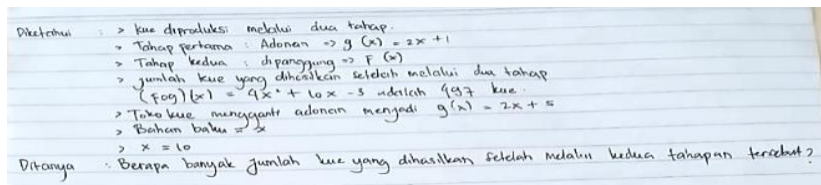 Diketahui : > kue diproduksi melalui dua tahap.
> Tahap pertama : Adonan => g(x) = 2x + 1
> Tahap kedua : dipanggung => F(x)
> jumlah kue yang dihasilkan setelah melalui dua tahap
(fog)(x) = 4x² + 10x - 3 adalah 497 kue.
> Toko kue mengganti adonan menjadi g(x) = 2x + 5
> Bahan baku = x
> x = 10
Ditanya : Berapa banyak jumlah kue yang dihasilkan setelah melalui kedua tahapan tersebut?